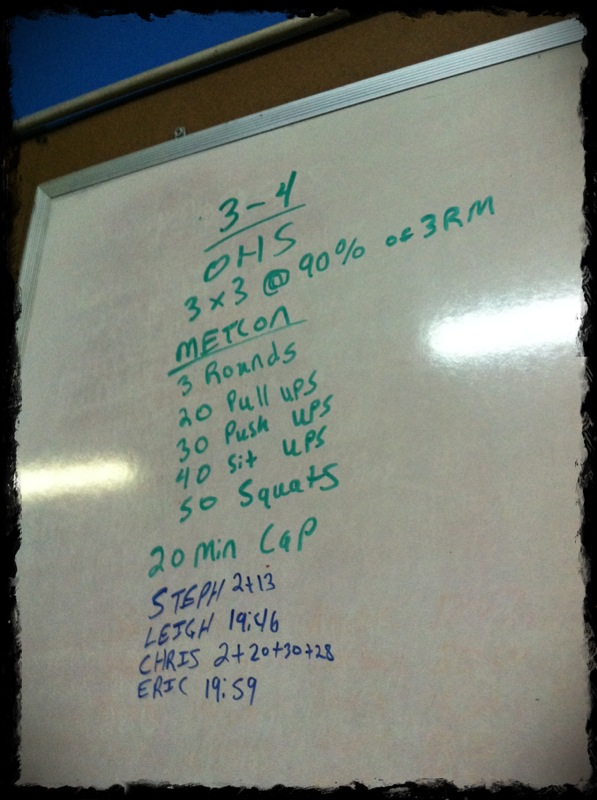 3-4
OHS
3x3 @ 90% of 3RM
METCON
3 Rounds
20 Pull ups
30 Push ups
40 Sit ups
50 Squats
20 Min Cap
STEPH 2+13
LEIGH 19:46
CHRIS 2+20+30+28
ERIC 19:59